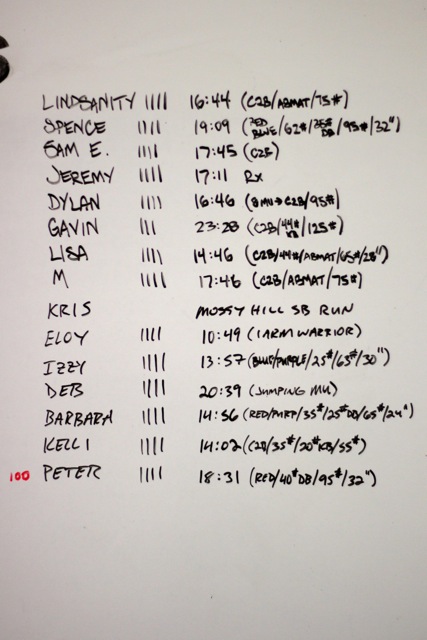 LINDSANITY IIII 16:44 (C2B/ABMAT/75#)
SPENCE IIII 19:09 (RED BLUE/62#/35# DB/95#/32")
SAM E. IIII 17:45 (C2B)
JEREMY IIII 17:11 Rx
DYLAN IIII 16:46 (BMU→C2B/95#)
GAVIN III 23:28 (C2B/44#/125#)
LISA IIII 14:46 (C2B/44#/ABMAT/65#/28")
M IIII 17:46 (C2B/ABMAT/75#)
KRIS MOSSY HILL SB RUN
ELOY IIII 10:49 (1 ARM WARRIOR)
IZZY IIII 13:57 (BLUE/PURPLE/25#/65#/30")
DEB IIII 20:39 (JUMPING MU)
BARBARA IIII 14:56 (RED/PURP/35#/25#DB/65#/24")
KELLI IIII 14:02 (C2B/35#/20#KB/55#)
100 PETER IIII 18:31 (RED/40#DB/95#/32")